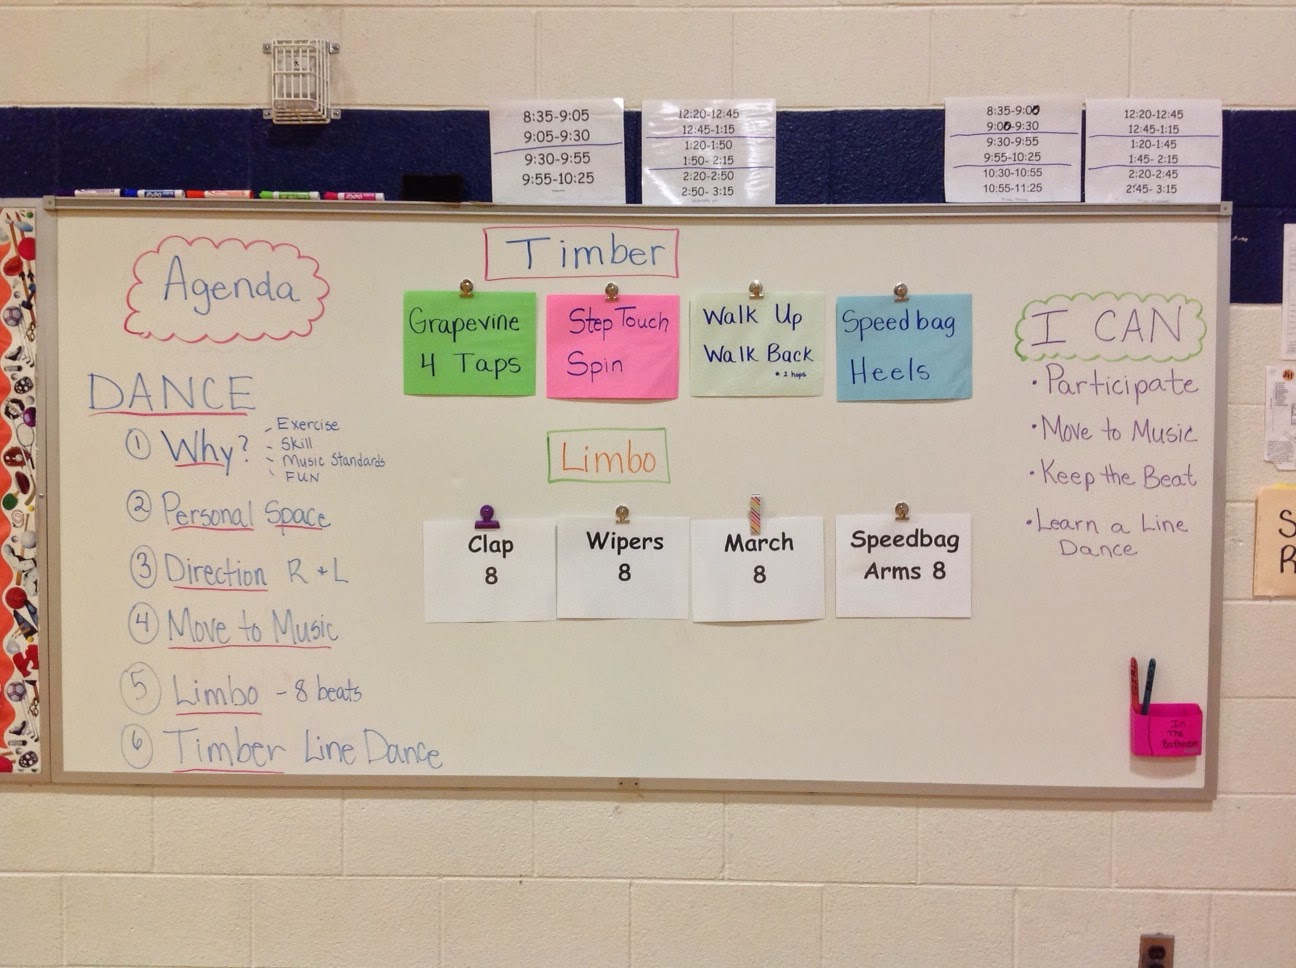 8:35-9:05
9:05-9:30
9:30-9:55
9:55-10:25
12:20-12:45
12:45-1:15
1:20-1:50
1:50- 2:15
2:20-2:50
2:50- 3:15
8:35-9:00
9:00-9:30
9:30-9:55
9:55-10:25
10:30-10:55
10:55-11:25
12:20-12:45
12:45-1:15
1:20-1:45
1:45- 2:15
2:20-2:45
2:45- 3:15
Agenda
DANCE
① Why?
- Exercise
- Skill
- Music Standards
- FUN
② Personal Space
③ Direction R + L
④ Move to Music
⑤ Limbo - 8 beats
⑥ Timber Line Dance
Timber
Grapevine
4 Taps
Step Touch
Spin
Walk Up
Walk Back
* 2 hops
Speedbag
Heels
Limbo
Clap
8
Wipers
8
March
8
Speedbag
Arms 8
I CAN
• Participate
• Move to Music
• Keep the Beat
• Learn a Line
Dance
In
The
Bathroom